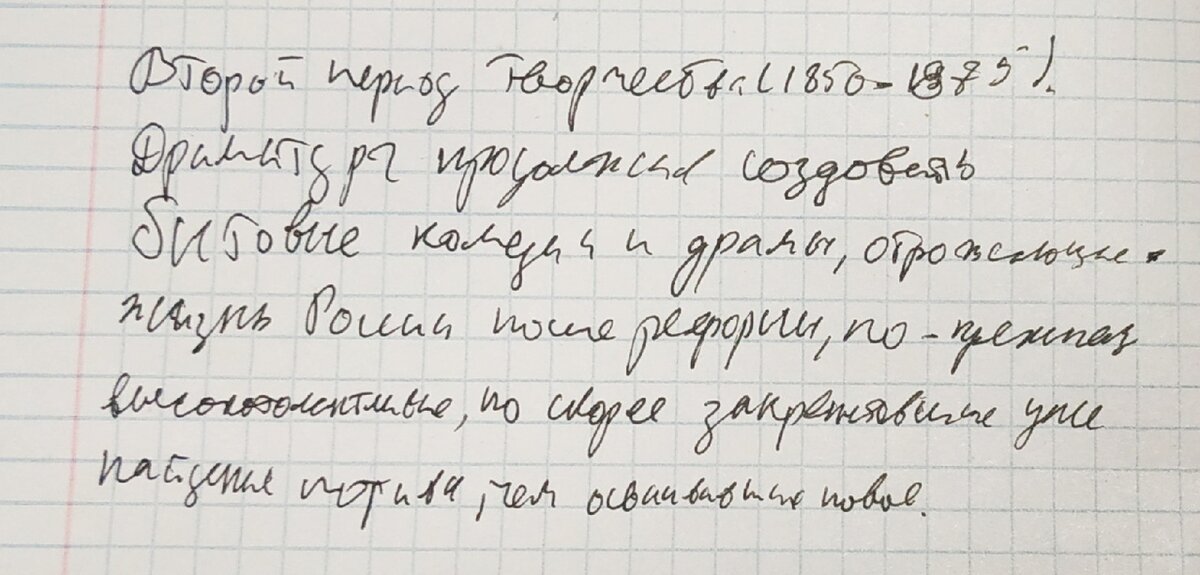 Второй период творчества (1850-1875).
Драматург продолжил создовать
битовые комедии и драмы, отрожающие
жизнь России после реформы, по-прежнему
высокоталантливые, но скорее закреплявшие уже
найденые мотивы, чем осваивавшие новое.